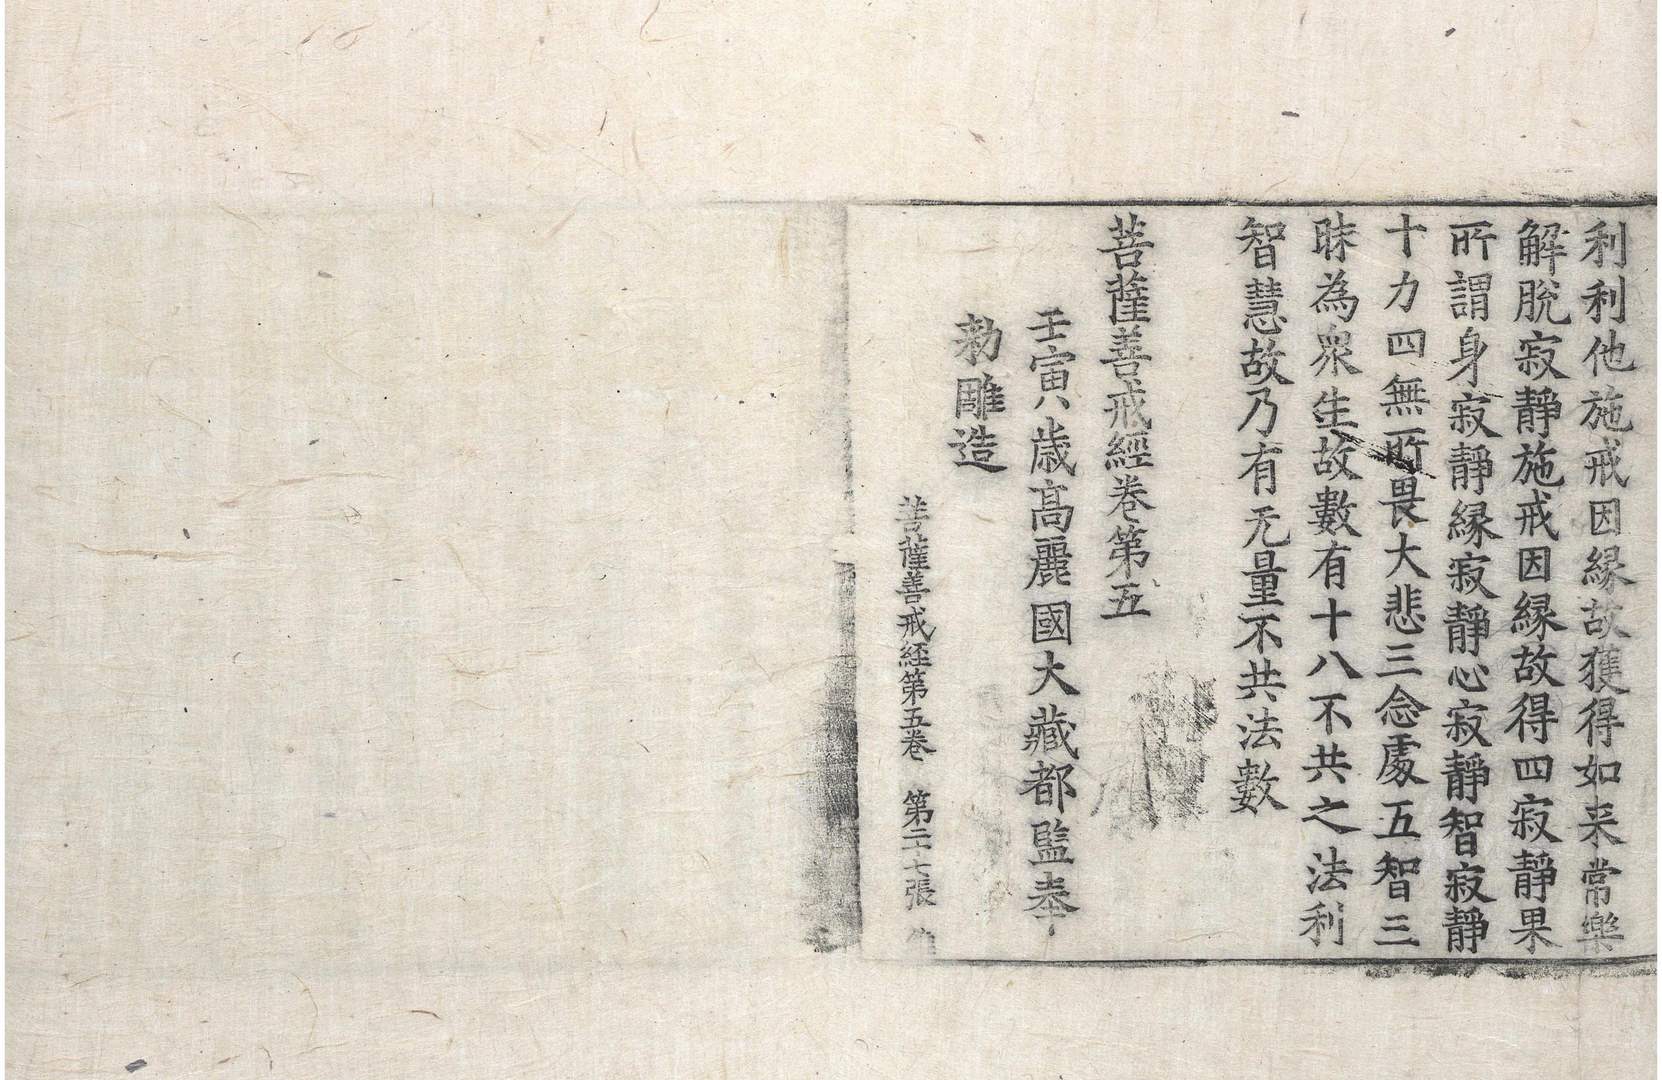 利利他施戒因縁故獲得如来常樂
解脫寂靜施戒因縁故得四寂靜果
所謂身寂靜縁寂靜心寂靜智寂靜
十力四無所畏大悲三念處五智三
昧為衆生故數有十八不共之法利
智慧故乃有无量不共法數
菩薩善戒經卷第五
壬寅歲高麗國大藏都監奉
勅雕造
菩薩善戒経第五卷 第二十七張